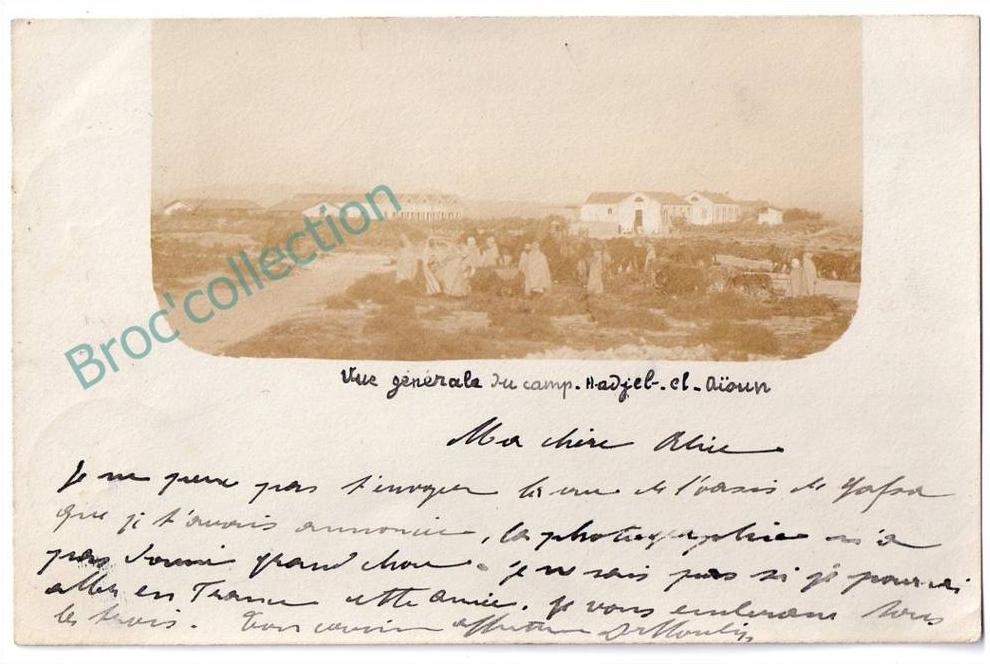 Broc'collection
Vue générale du camp. Hadjeb-el-Aïoun
Ma chère
Je ne peux pas t'envoyer la vue de l'oasis de Gafsa
que je t'avais annoncée, la photographie n'a
pas donné grand'chose. Je ne sais pas si je pourrai
aller en France cette année. Je vous embrasse tous
les trois. Ton cousin